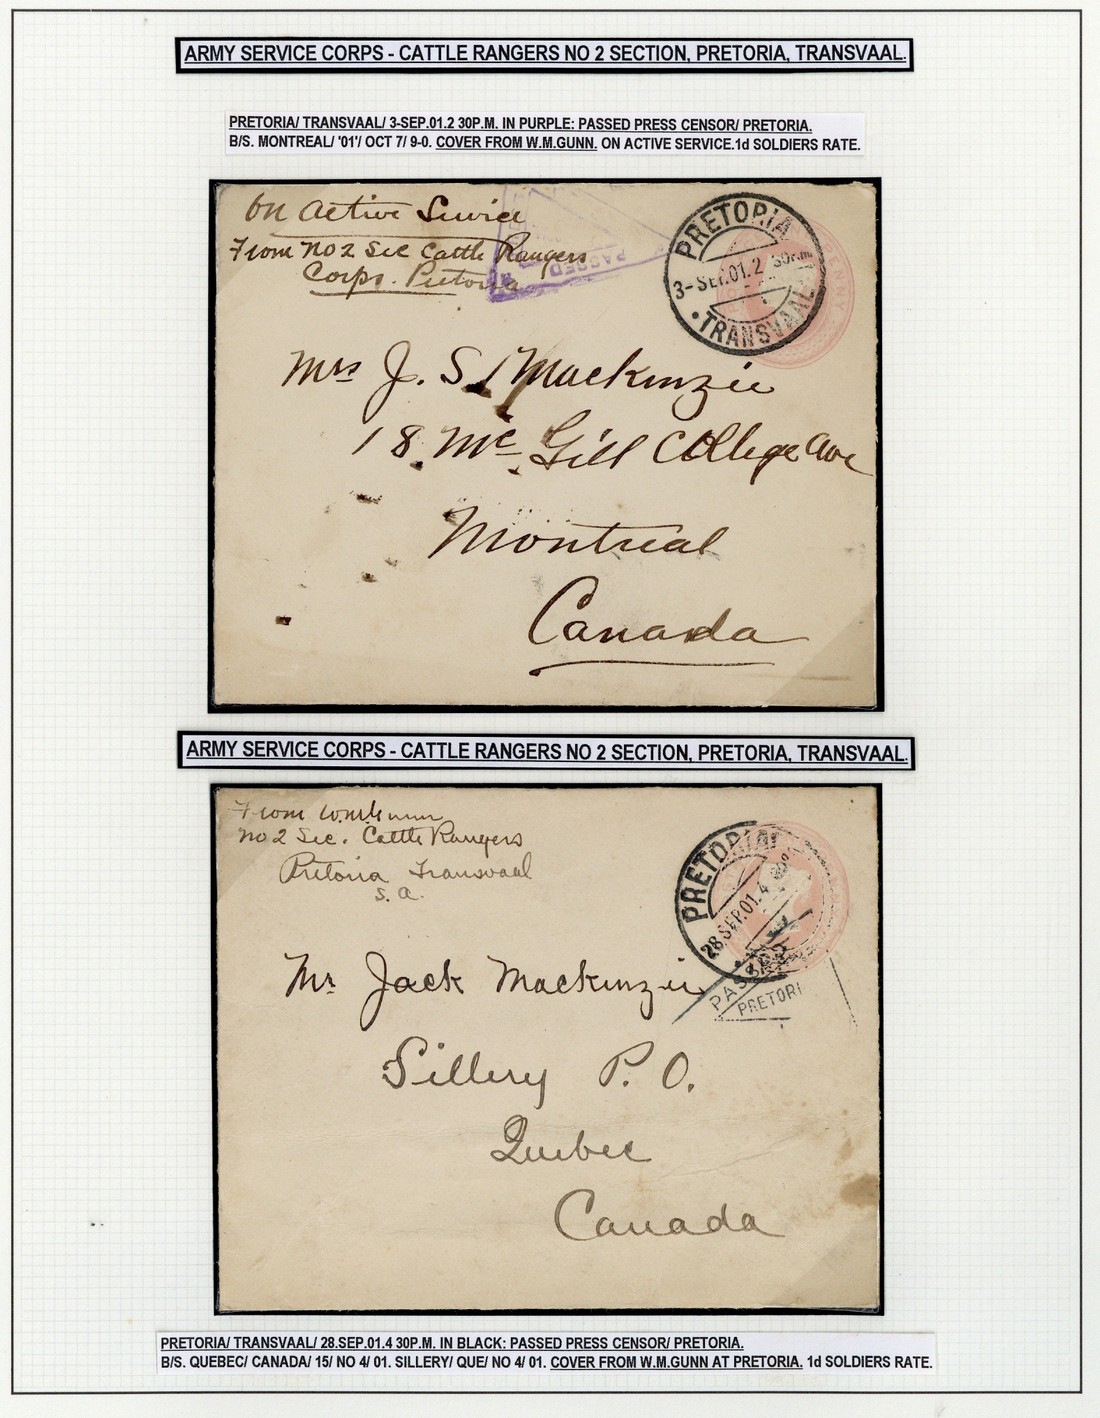 ARMY SERVICE CORPS - CATTLE RANGERS NO 2 SECTION, PRETORIA, TRANSVAAL.
PRETORIA/ TRANSVAAL/ 3-SEP.01.2 30P.M. IN PURPLE: PASSED PRESS CENSOR/ PRETORIA.
B/S. MONTREAL/ '01'/ OCT 7/ 9-0. COVER FROM W.M.GUNN. ON ACTIVE SERVICE.1d SOLDIERS RATE.
On Active Service
From No 2 Sec Cattle Rangers
Corps. Pretoria
PASSED
PRETORIA
3-SEP.01.2 30P.M.
TRANSVAAL
PENNY
Mrs J. S. Mackinzie
18 Mc Gill College Ave
Montreal
Canada
ARMY SERVICE CORPS - CATTLE RANGERS NO 2 SECTION, PRETORIA, TRANSVAAL.
From W M Gunn
No 2 Sec. Cattle Rangers
Pretoria Transvaal
S.A.
PRETORIA
28.SEP.01.4
PASS
PRETORI
Mr Jack Mackinzie
Sillery P.O.
Quebec
Canada
PRETORIA/ TRANSVAAL/ 28.SEP.01.4 30P.M. IN BLACK: PASSED PRESS CENSOR/ PRETORIA.
B/S. QUEBEC/ CANADA/ 15/ NO 4/ 01. SILLERY/ QUE/ NO 4/ 01. COVER FROM W.M.GUNN AT PRETORIA. 1d SOLDIERS RATE.